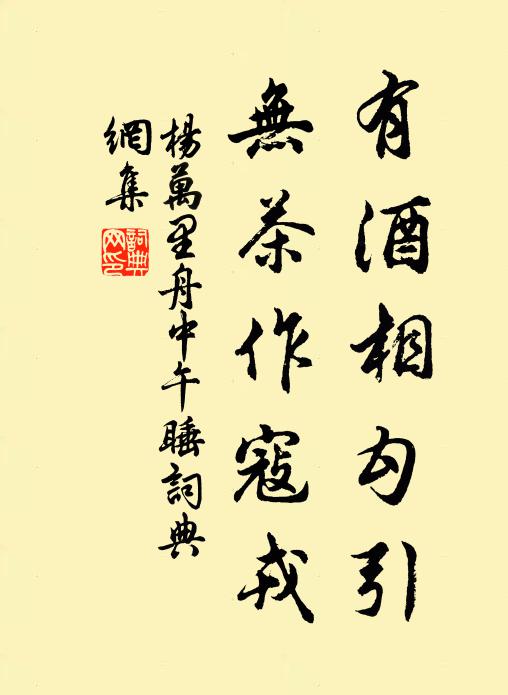 有酒相勾引
無茶作寇戎
楊萬里舟中午睡詞典
網集
詞典
网印